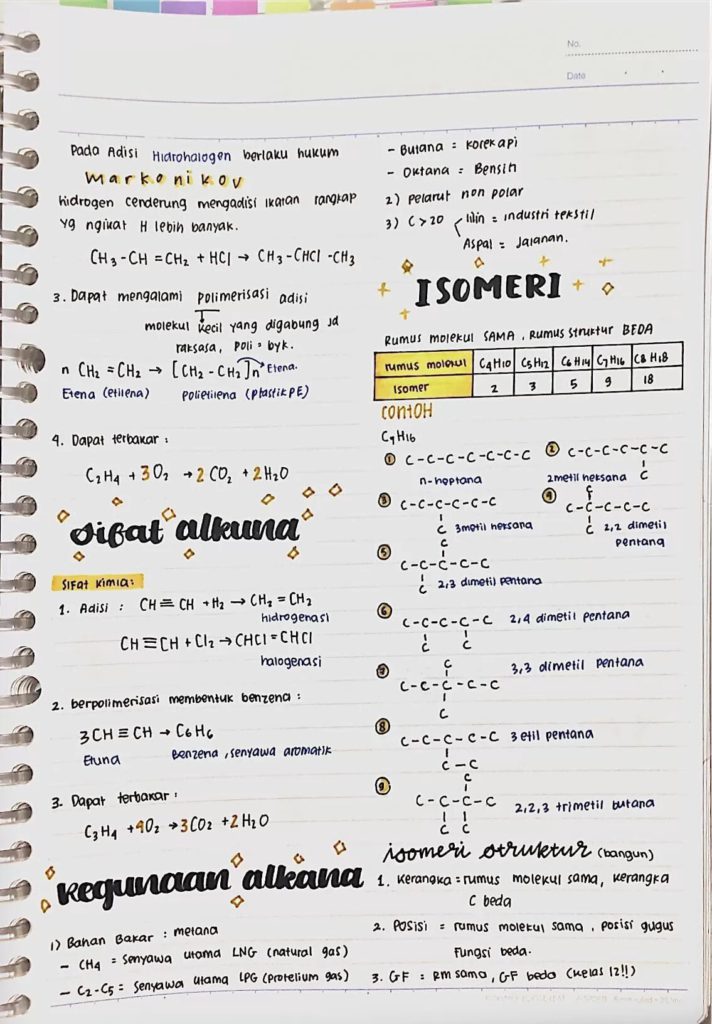 No.
Date
Pada Adisi Hidrohalogen berlaku hukum
Markonikov
hidrogen cenderung mengadisi ikatan rangkap
yg ngikat H lebih banyak.
CH3-CH=CH2 + HCl → CH3-CHCl-CH3
3. Dapat mengalami polimerisasi adisi
molekul kecil yang digabung jd
raksasa, poli = byk.
n CH2=CH2 → [CH2-CH2]n Etena.
Etena (etilena) polietilena (plastik PE)
4. Dapat terbakar :
C2H4 + 3O2 → 2CO2 + 2H2O
sifat alkuna
Sifat kimia:
1. Adisi : CH≡CH + H2 → CH2=CH2
hidrogenasi
CH≡CH + Cl2 → CHCl=CHCl
halogenasi
2. berpolimerisasi membentuk benzena :
3CH≡CH → C6H6
Etuna Benzena, senyawa aromatik
3. Dapat terbakar :
C3H4 + 4O2 → 3CO2 + 2H2O
kegunaan alkana
1) Bahan Bakar : metana
- CH4 = Senyawa utama LNG (natural gas)
- C2-C5 = Senyawa utama LPG (Protelium gas)
- Butana = Korek api
- Oktana = Bensin
2) Pelarut non polar
3) C>20 lilin = industri tekstil
Aspal = Jalanan.
ISOMERI
Rumus molekul SAMA, Rumus struktur BEDA
rumus molekul C4H10 C5H12 C6H14 C7H16 C8H18
Isomer 2 3 5 9 18
CONTOH
C7H16
1 C-C-C-C-C-C-C
n-heptana
2 C-C-C-C-C-C
C
2 metil heksana
3 C-C-C-C-C-C
C
3 metil heksana
4 C
C-C-C-C-C
C
2,2 dimetil
pentana
5 C
C-C-C-C-C
C
2,3 dimetil pentana
6 C-C-C-C-C 2,4 dimetil pentana
C C
7 C
C-C-C-C-C 3,3 dimetil pentana
C
8 C-C-C-C-C 3 etil pentana
C-C
9 C
C-C-C-C 2,2,3 trimetil butana
C C
isomeri struktur (bangun)
1. Kerangka = rumus molekul sama, kerangka
C beda
2. Posisi = rumus molekul sama, posisi gugus
Fungsi beda.
3. GF = RM sama, GF beda (kelas 12!!)